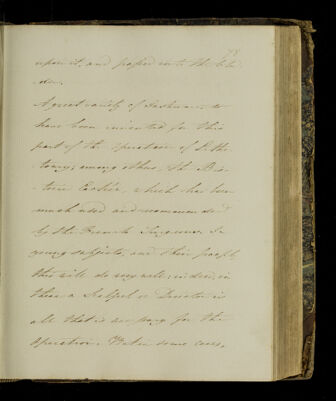 78
upon it, and passed into the bla-
-der.
A great variety of Instruments
have been invented for this
part of the operation of Litho-
-tomy; among others, the Bis-
-torie Caché, which has been
much used and recommended
by the French Surgeons. In
young subjects, and thin people
this will do very well; indeed, in
these a Scalpel or Director is
all that is necessary for the
operation. But in some cases,